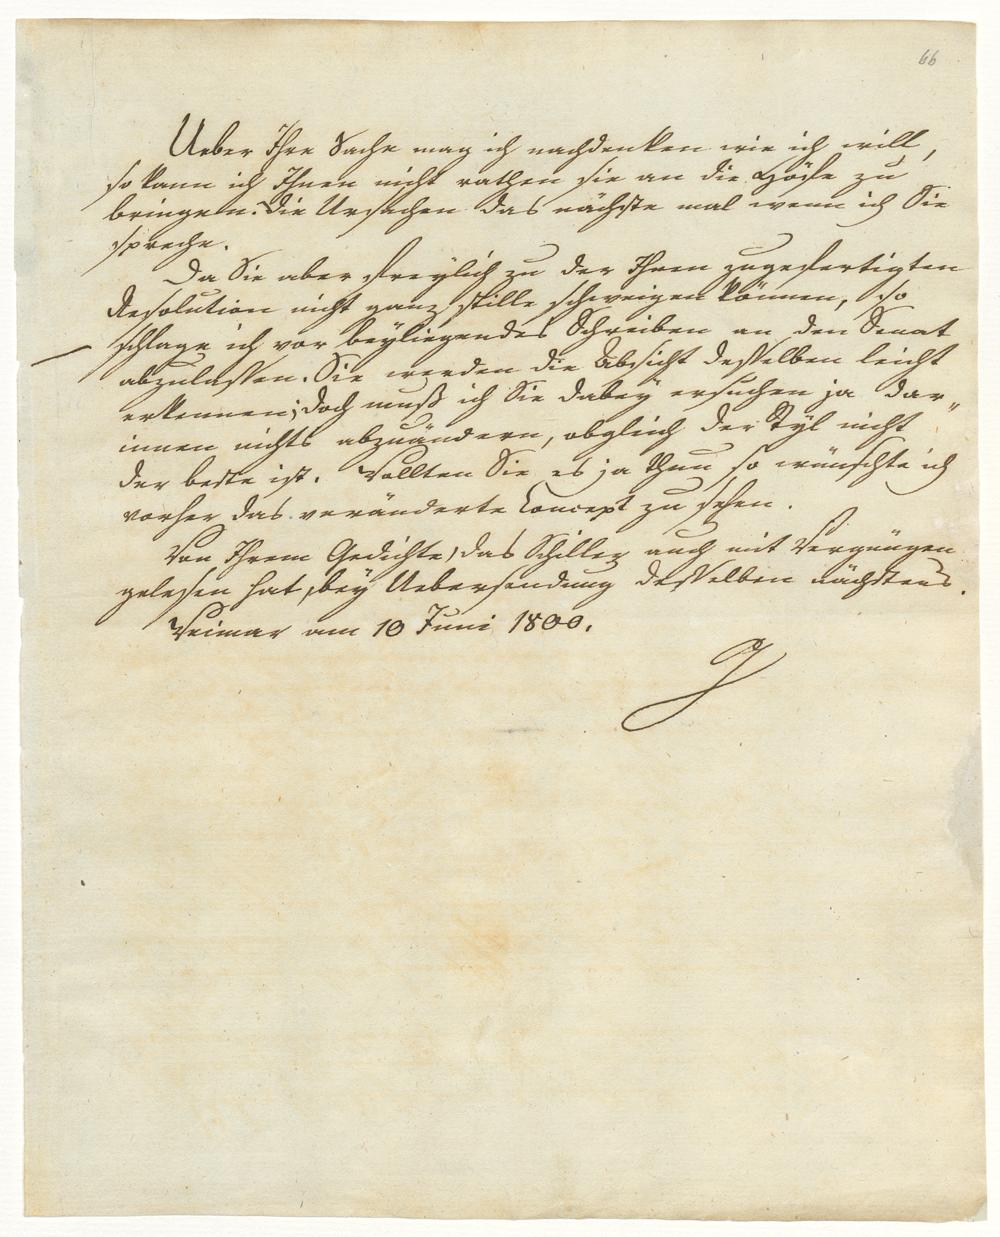 66
Ueber Ihre Sache mag ich nachdenken wie ich will,
so kann ich Ihnen nicht rathen sie an die Höfe zu
bringen. Die Ursachen das nächste mal wenn ich Sie
spreche.
Da Sie aber freylich zu der Ihnen zugefertigten
Resolution nicht ganz stille schweigen können, so
schlage ich vor beyliegendes Schreiben an den Senat
abzulassen. Sie werden die Absicht desselben leicht
erkennen; doch muß ich Sie dabey ersuchen ja dar„
innen nichts abzuändern, obgleich der Styl nicht
der beste ist. Sollten Sie es ja thun so wünschte ich
vorher das veränderte Concept zu sehen.
Von Ihrem Gedichte, das Schiller auch mit Vergnügen
gelesen hat, bey Uebersendung desselben nächstens.
Weimar am 10 Juni 1800.
G